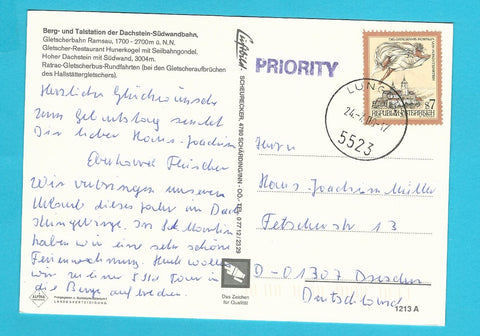 Berg- und Talstation der Dachstein-Südwandbahn,
Gletscherbahn Ramsau, 1700 - 2700m ü. N.N.
Gletscher-Restaurant Hunerkogel mit Seilbahngondel.
Hoher Dachstein mit Südwand, 3004m.
Ratrac-Gletscherbus-Rundfahrten (bei den Gletscheraufbrüchen
des Hallstättergletschers).
Herzliche Glückwünsche
zum Geburtstag sendet
Dir lieber Hans-Joachim
Eberhard Fleischer
Wir verbringen unseren
Urlaub dieses Jahr im Dach-
steingebirge. In St. Martin
haben wir eine sehr schöne
Ferienwohnung. Heute wollen
wir zu einer Tour in
die Berge aufbrechen.
Luftbild
SCHEUERECKER, 4780 SCHÄRDING/INN - OÖ., TEL. 0 77 12
PRIORITY
LUNG
5523
S 7
REPUBLIK ÖSTERREICH
Herrn
Hans-Joachim Müller
Fetscherstr. 13
D-01307 Dresden
Deutschland
Das Zeichen
für Qualität
1213 A